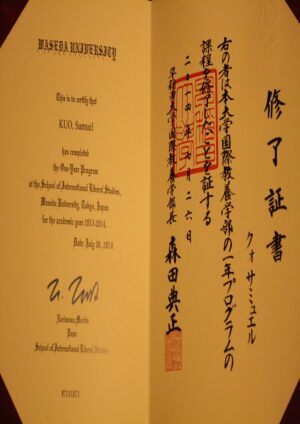 WASEDA UNIVERSITY
This is to certify that
KUO, Samuel
has completed
the One-Year Program
at the School of International Liberal Studies,
Waseda University, Tokyo, Japan
for the academic year 2013-2014.
Date: July 26, 2014
Norimasa Morita
Dean
School of International Liberal Studies
修了証書
クオ サミュエル
右の者は本大学国際教養学部の一年プログラムの
課程を修了したことを証する
二〇一四年七月二六日
早稲田大学国際教養学部長 森田典正